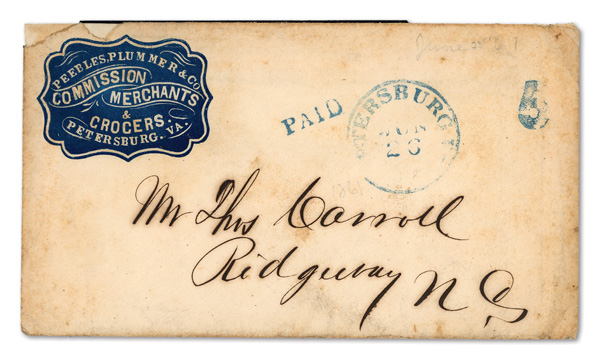 PEEBLES, PLUMMER & CO.
COMMISSION
MERCHANTS
&
GROCERS.
PETERSBURG. VA.
PAID
PETERSBURG
JUN
26
5
June
1861
Mr Thos Carroll
Ridgeway N C